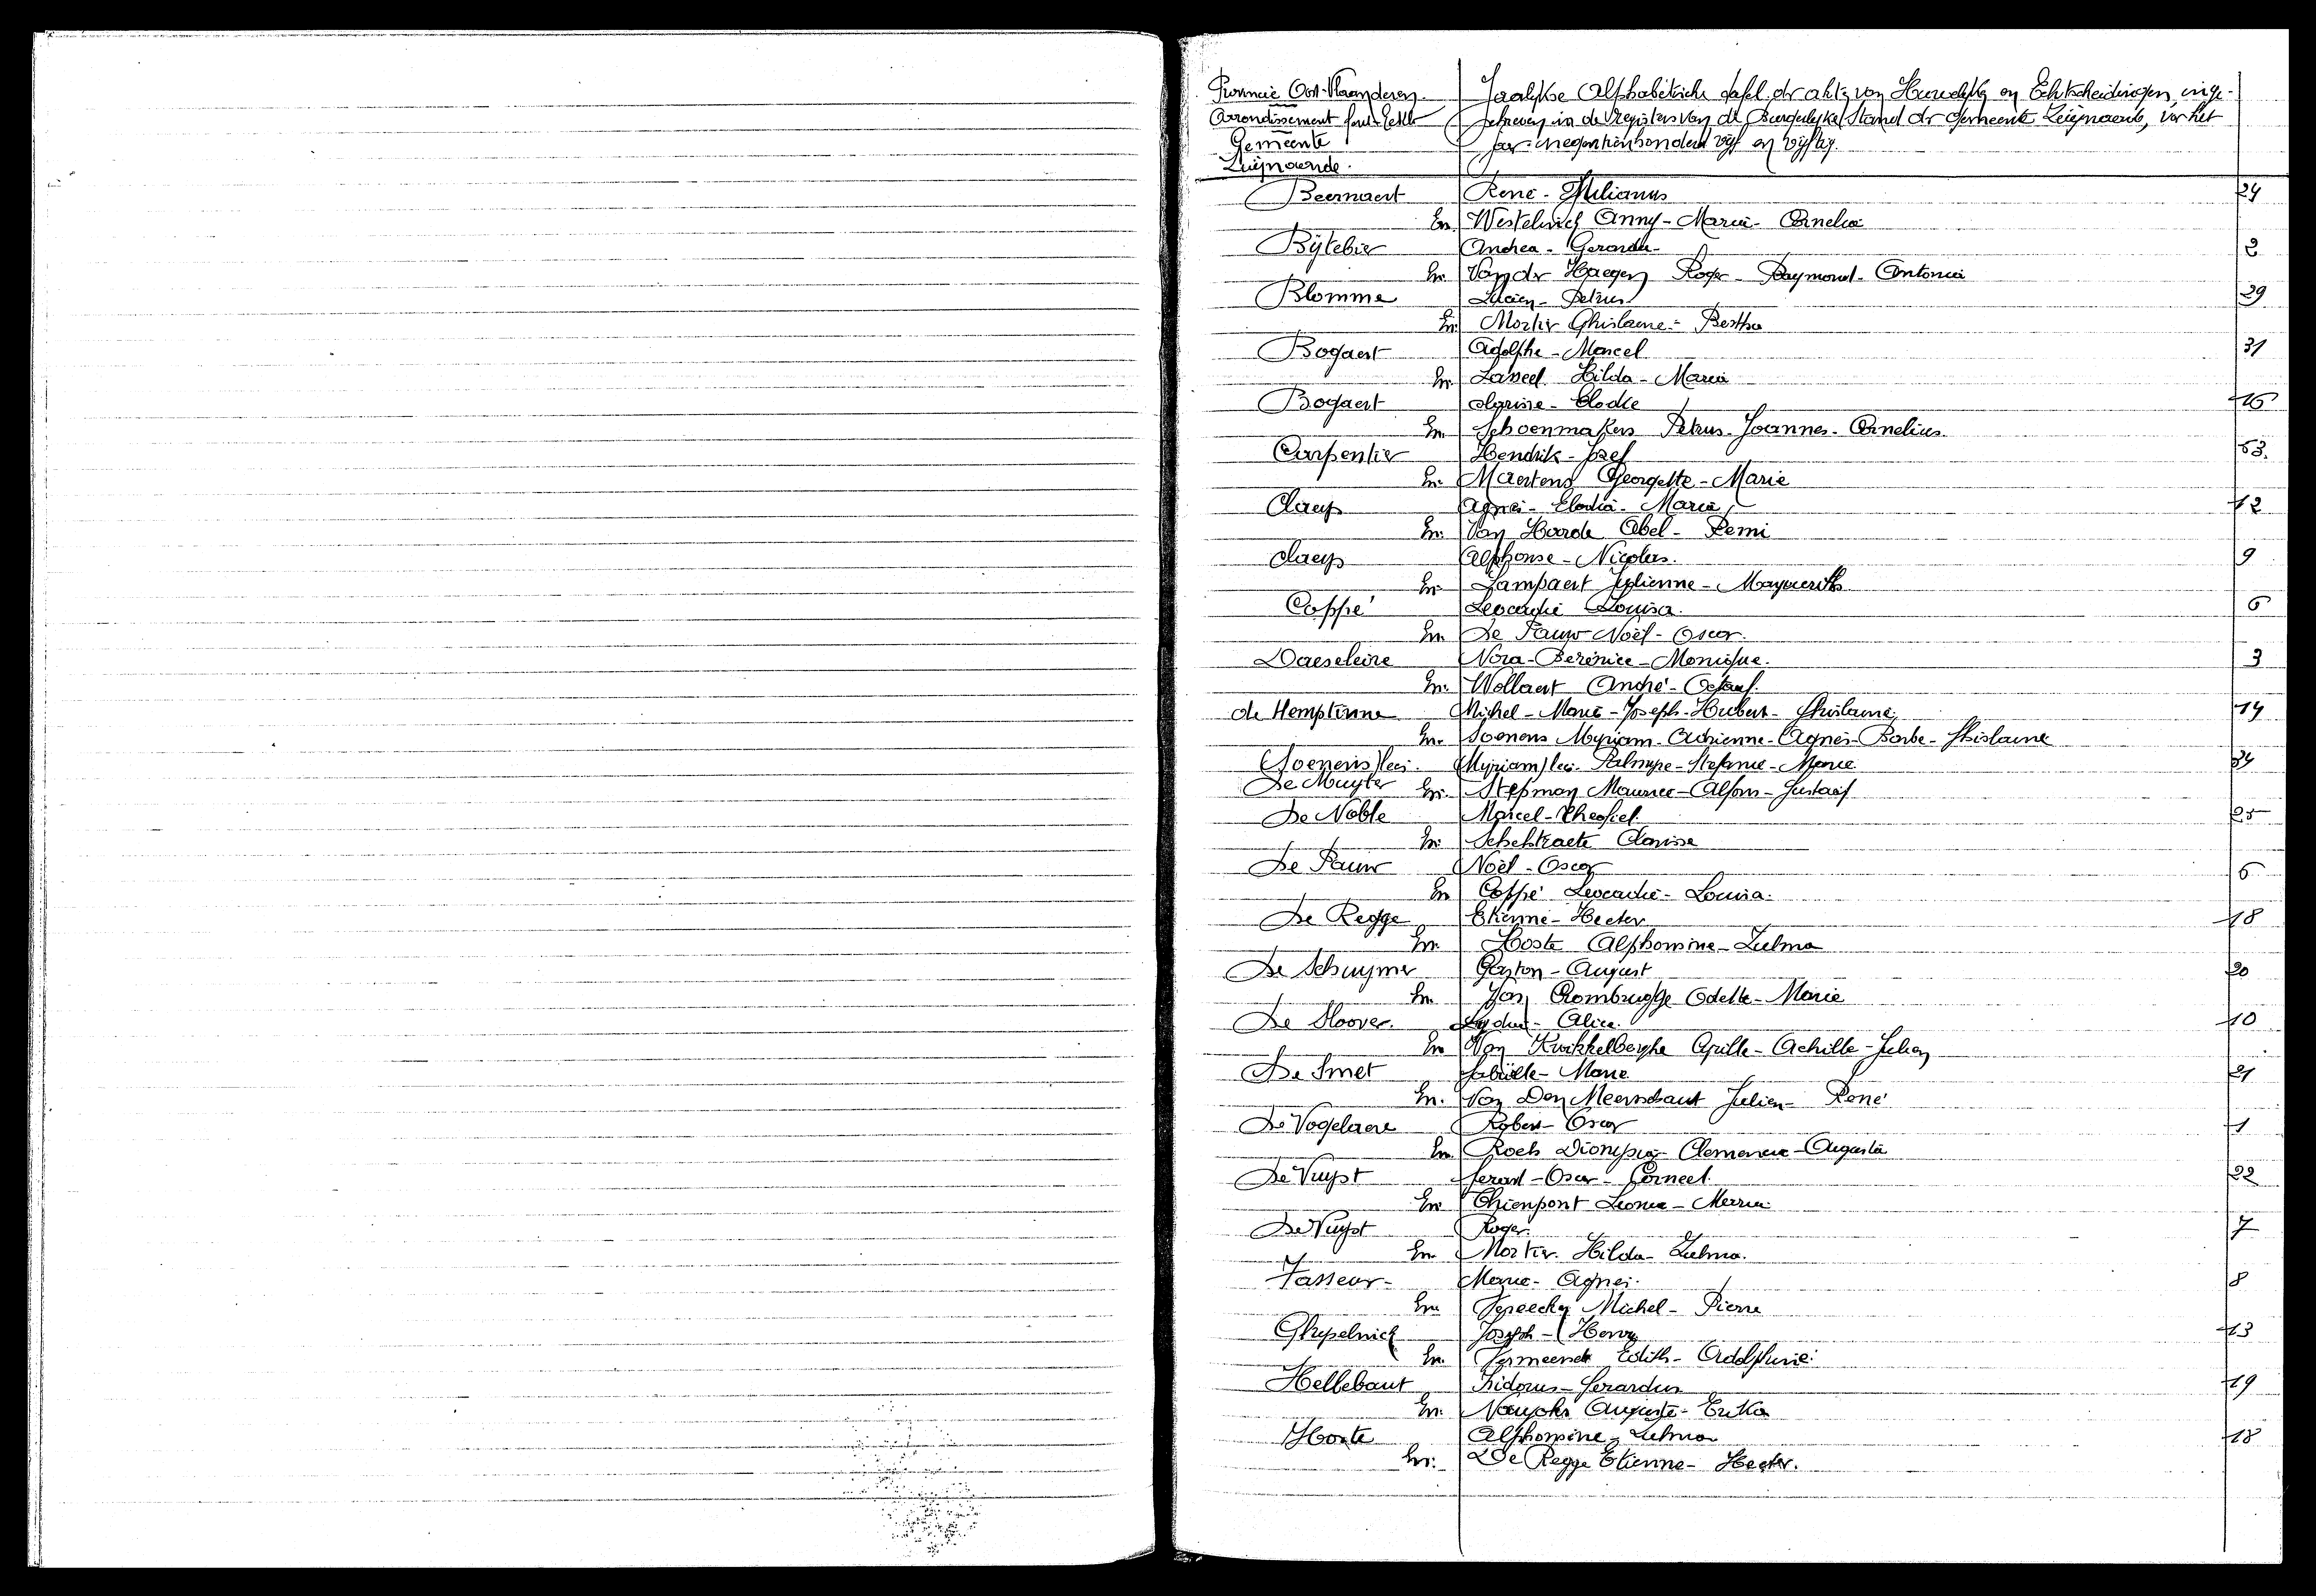 Provincie Oost-Vlaanderen.
Arrondissement Gent-Eekloo
Gemeente
Zwijnaarde.
Jaarlijkse Alphabetische tafel der akten van Huwelijken en Echtscheidingen, inge-
schreven in de Registers van de Burgerlijke Stand der Gemeente Zwijnaarde, voor het
jaar negentienhonderd vijf en vijftig.
Beernaert René - 24
En. Anny - Maria - Cornelia
Bijtebier Andrea - Gerarda 2
En. Van der Haegen Roger - Raymond - Antonia
Blomme Lucien - Petrus 29
En. Mortier Ghislaine - Bertha
Bogaert Adolphe - Marcel 31
En. Hilda - Maria
Bogaert Clarisse - Elodie 15
En. Schoenmakers Petrus - Joannes - Cornelius
Carpentier Hendrik - Jozef 53.
En. Maertens Georgette - Marie
Claeys Agnes - Elodia - Maria 12
En. Van Hoorde Abel - Remi
Claeys Alphonse - Nicolas. 9
En. Lampaert Julienne - Marguerite
Coppé Leocadie Louisa. 6
En De Pauw Noël - Oscar.
Daeseleire Nora - Berénice - Monique. 3
En. Wollaert André - Octaaf.
de Hemptinne Michel - Marie - Joseph - Hubert - Ghislaine 14
En. Soenens Myriam - Adrienne - Agnes - Barbe - Ghislaine
(Soenens) lees. (Myriam) lees. Palmyre - Stefanie - Marie 34
De Muyter En. Stepman Maurice - Alfons - Gustaaf
De Noble Marcel - Theofiel. 25
En. Schelstraete Clarisse
De Pauw Noël - Oscar 6
En Coppé Leocadie - Louisa.
De Regge Etienne - Hector 18
En. Hoste Alphonsine - Zulma
De Schuymer Gaston - August 20
En. Van Rombrugge Odette - Marie
De Sloover. Lydia - Alice. 10
En Van Kwikkelberghe Achille - Julien
De Smet Gabrielle - Marie 21
En. Van Den Meerschaut Julien - René
De Vogelaere Robert - Oscar 1
En. Roels Dionysia - Clemencia - Augusta
De Vuyst Gerard - Oscar - Corneel. 22
En Thienpont Leonia - Maria
De Vuyst Roger. 7
En. Mortier. Hilda - Zulma.
Fasseur - Marie - Agnes. 8
En Spreeckx Michel - Pierre
Ghyselinck Joseph - Henri 13
En. Vermeersch Edith - Adolphine.
Hellebaut Isidorus - Gerardus 19
En. Auguste - Erika
Hoste Alphonsine - Zulma 18
En. De Regge Etienne - Hector.